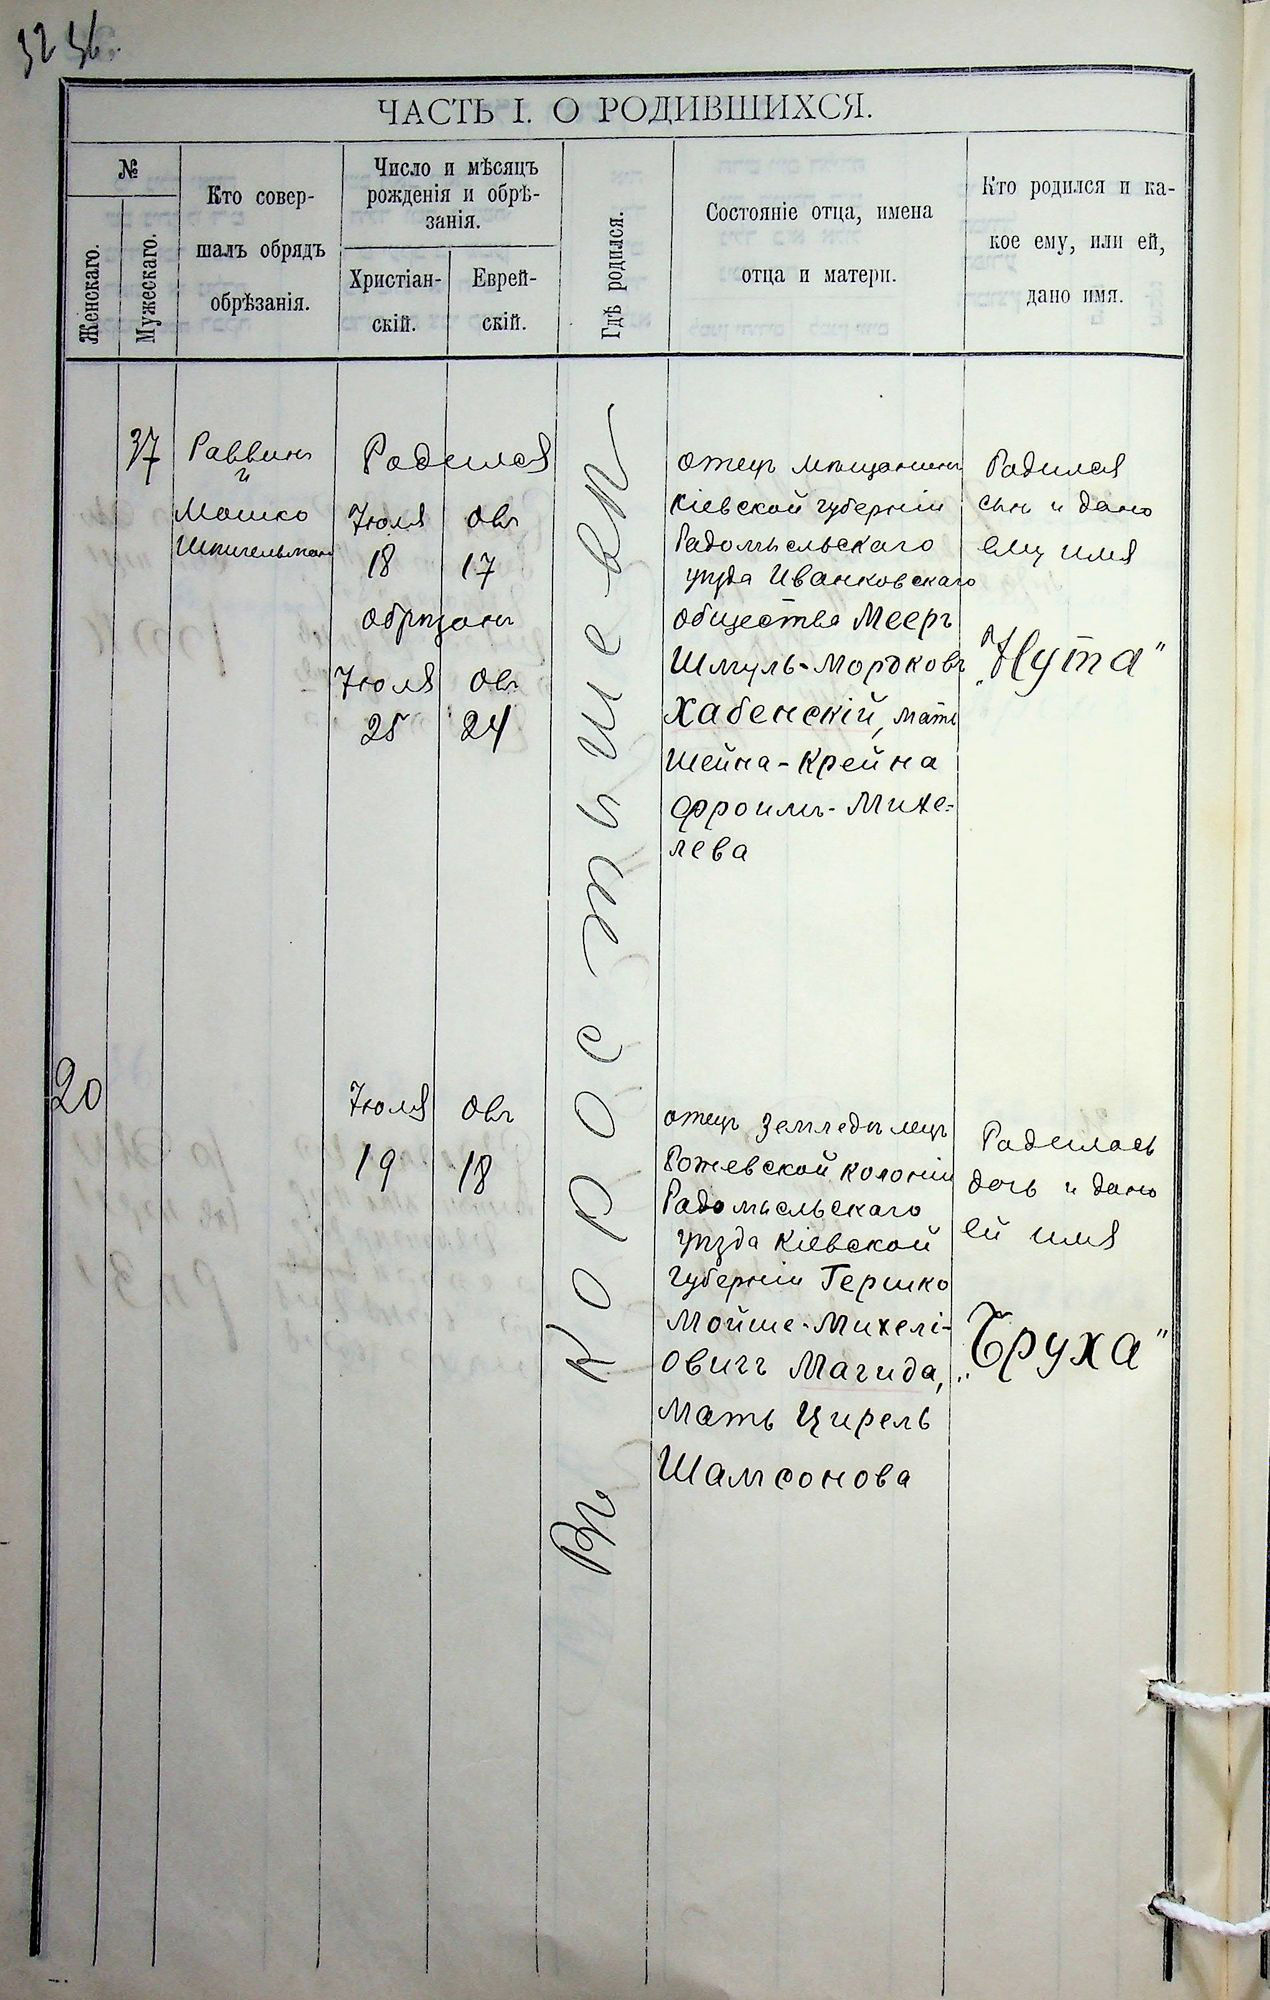 32 36.
ЧАСТЬ I. О РОДИВШИХСЯ.
№
Женскаго.
Мужескаго.
Кто совер-
шалъ обрядъ
обрѣзанія.
Число и мѣсяцъ
рожденія и обрѣ-
занія.
Христіан-
скій.
Еврей-
скій.
Гдѣ родился.
Состояніе отца, имена
отца и матери.
Кто родился и ка-
кое ему, или ей,
дано имя.
37
Раввинъ
и
Мошко
Шпигельман
Родился
Іюля Овъ
18 17
обрѣзанъ
Іюля Овъ
25 24
Въ Коростышевѣ
отецъ мѣщанинъ
Кіевской губерніи
Радомысльскаго
уѣзда Иванковскаго
общества Мееръ
Шмуль-Мордковъ
Хабенскій, мать
Шейна-Крейна
Фроимъ-Михе-
лева
Родился
сын и дано
ему имя
„Нута"
20
Іюля Овъ
19 18
отецъ земледѣлецъ
Рожевской колоніи
Радомысльскаго
уѣзда Кіевской
губерніи Гершко
Мойше-Михелі-
овичъ Магида,
мать Цирель
Шамсонова
Родилась
дочь и дано
ей имя
„Бруха"